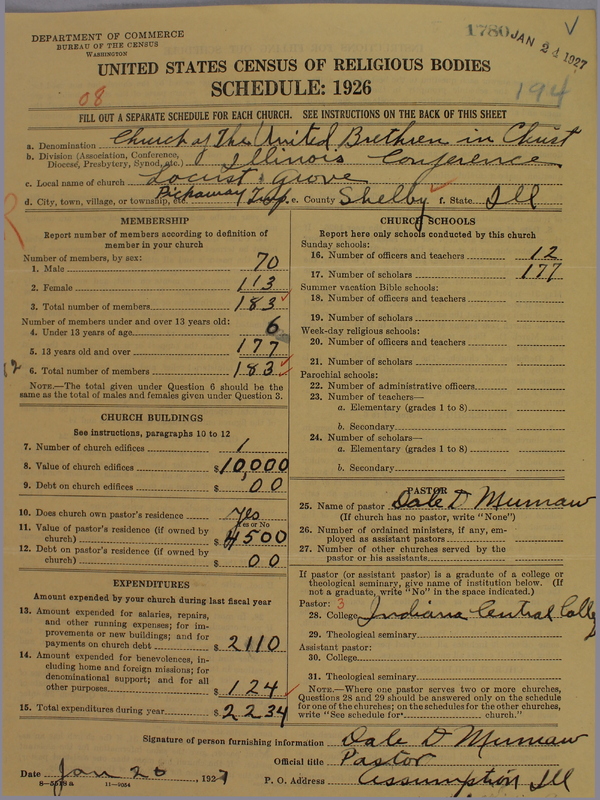 DEPARTMENT OF COMMERCE
BUREAU OF THE CENSUS
WASHINGTON
1780
JAN 24 1927
UNITED STATES CENSUS OF RELIGIOUS BODIES
SCHEDULE: 1926
08
194
FILL OUT A SEPARATE SCHEDULE FOR EACH CHURCH. SEE INSTRUCTIONS ON THE BACK OF THIS SHEET
a. Denomination Church of The United Brethren in Christ
b. Division (Association, Conference, Diocese, Presbytery, Synod, etc.) Illinois Conference
c. Local name of church Locust Grove
d. City, town, village, or township, etc. Pickaway Twp. e. County Shelby f. State Ill
MEMBERSHIP
Report number of members according to definition of
member in your church
Number of members, by sex:
1. Male 70
2. Female 113
3. Total number of members 183
Number of members under and over 13 years old:
4. Under 13 years of age 6
5. 13 years old and over 177
6. Total number of members 183
NOTE.—The total given under Question 6 should be the
same as the total of males and females given under Question 3.
CHURCH BUILDINGS
See instructions, paragraphs 10 to 12
7. Number of church edifices 1
8. Value of church edifices $10,000
9. Debt on church edifices $00
10. Does church own pastor's residence Yes
Yes or No
11. Value of pastor's residence (if owned by
church) $4500
12. Debt on pastor's residence (if owned by
church) $00
EXPENDITURES
Amount expended by your church during last fiscal year
13. Amount expended for salaries, repairs,
and other running expenses; for im-
provements or new buildings; and for
payments on church debt $2110
14. Amount expended for benevolences, in-
cluding home and foreign missions; for
denominational support; and for all
other purposes $124
15. Total expenditures during year $2234
CHURCH SCHOOLS
Report here only schools conducted by this church
Sunday schools:
16. Number of officers and teachers 12
17. Number of scholars 177
Summer vacation Bible schools:
18. Number of officers and teachers
19. Number of scholars
Week-day religious schools:
20. Number of officers and teachers
21. Number of scholars
Parochial schools:
22. Number of administrative officers
23. Number of teachers—
a. Elementary (grades 1 to 8)
b. Secondary
24. Number of scholars—
a. Elementary (grades 1 to 8)
b. Secondary
PASTOR
25. Name of pastor Dale D Mumaw
(If church has no pastor, write "None")
26. Number of ordained ministers, if any, em-
ployed as assistant pastors
27. Number of other churches served by the
pastor or his assistants
If pastor (or assistant pastor) is a graduate of a college or
theological seminary, give name of institution below. (If
not a graduate, write "No" in the space indicated.)
Pastor: 3
28. College Indiana Central
29. Theological seminary
Assistant pastor:
30. College
31. Theological seminary
NOTE.—Where one pastor serves two or more churches,
Questions 28 and 29 should be answered only on the schedule
for one of the churches; on the schedules for the other churches,
write "See schedule for church."
Signature of person furnishing information Dale D Mumaw
Official title Pastor
Date Jan 20, 1927 P. O. Address Assumption Ill
11—9084